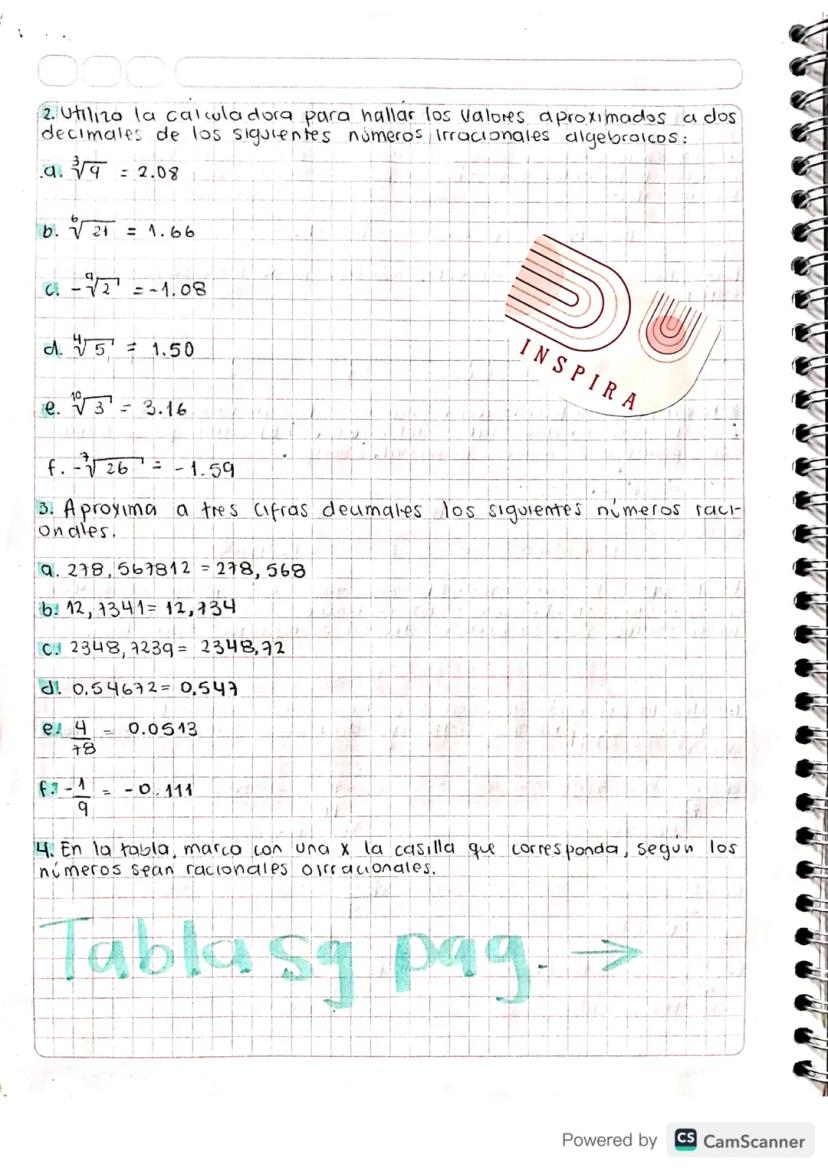 2. Utilizo la calculadora para hallar los valores aproximados a dos
decimales de los siguientes números irracionales algebraicos:
a. ∛9 = 2.08
b. ⁶√21 = 1.66
c. -⁹√2 = -1.08
d. ⁴√5 = 1.50
e. ¹⁰√3 = 3.16
f. -⁷√26 = -1.59
INSPIRA
3. Aproxima a tres cifras decimales los siguientes números raci-
onales.
a. 278,567812 = 278,568
b. 12,7341 = 12,734
c. 2348,7239 = 2348,72
d. 0.54672 = 0.547
e. 4/78 = 0.0513
f. -1/9 = -0.111
4. En la tabla, marco con una x la casilla que corresponda, según los
números sean racionales o irracionales.
Tabla sg pag. →
Powered by CS CamScanner